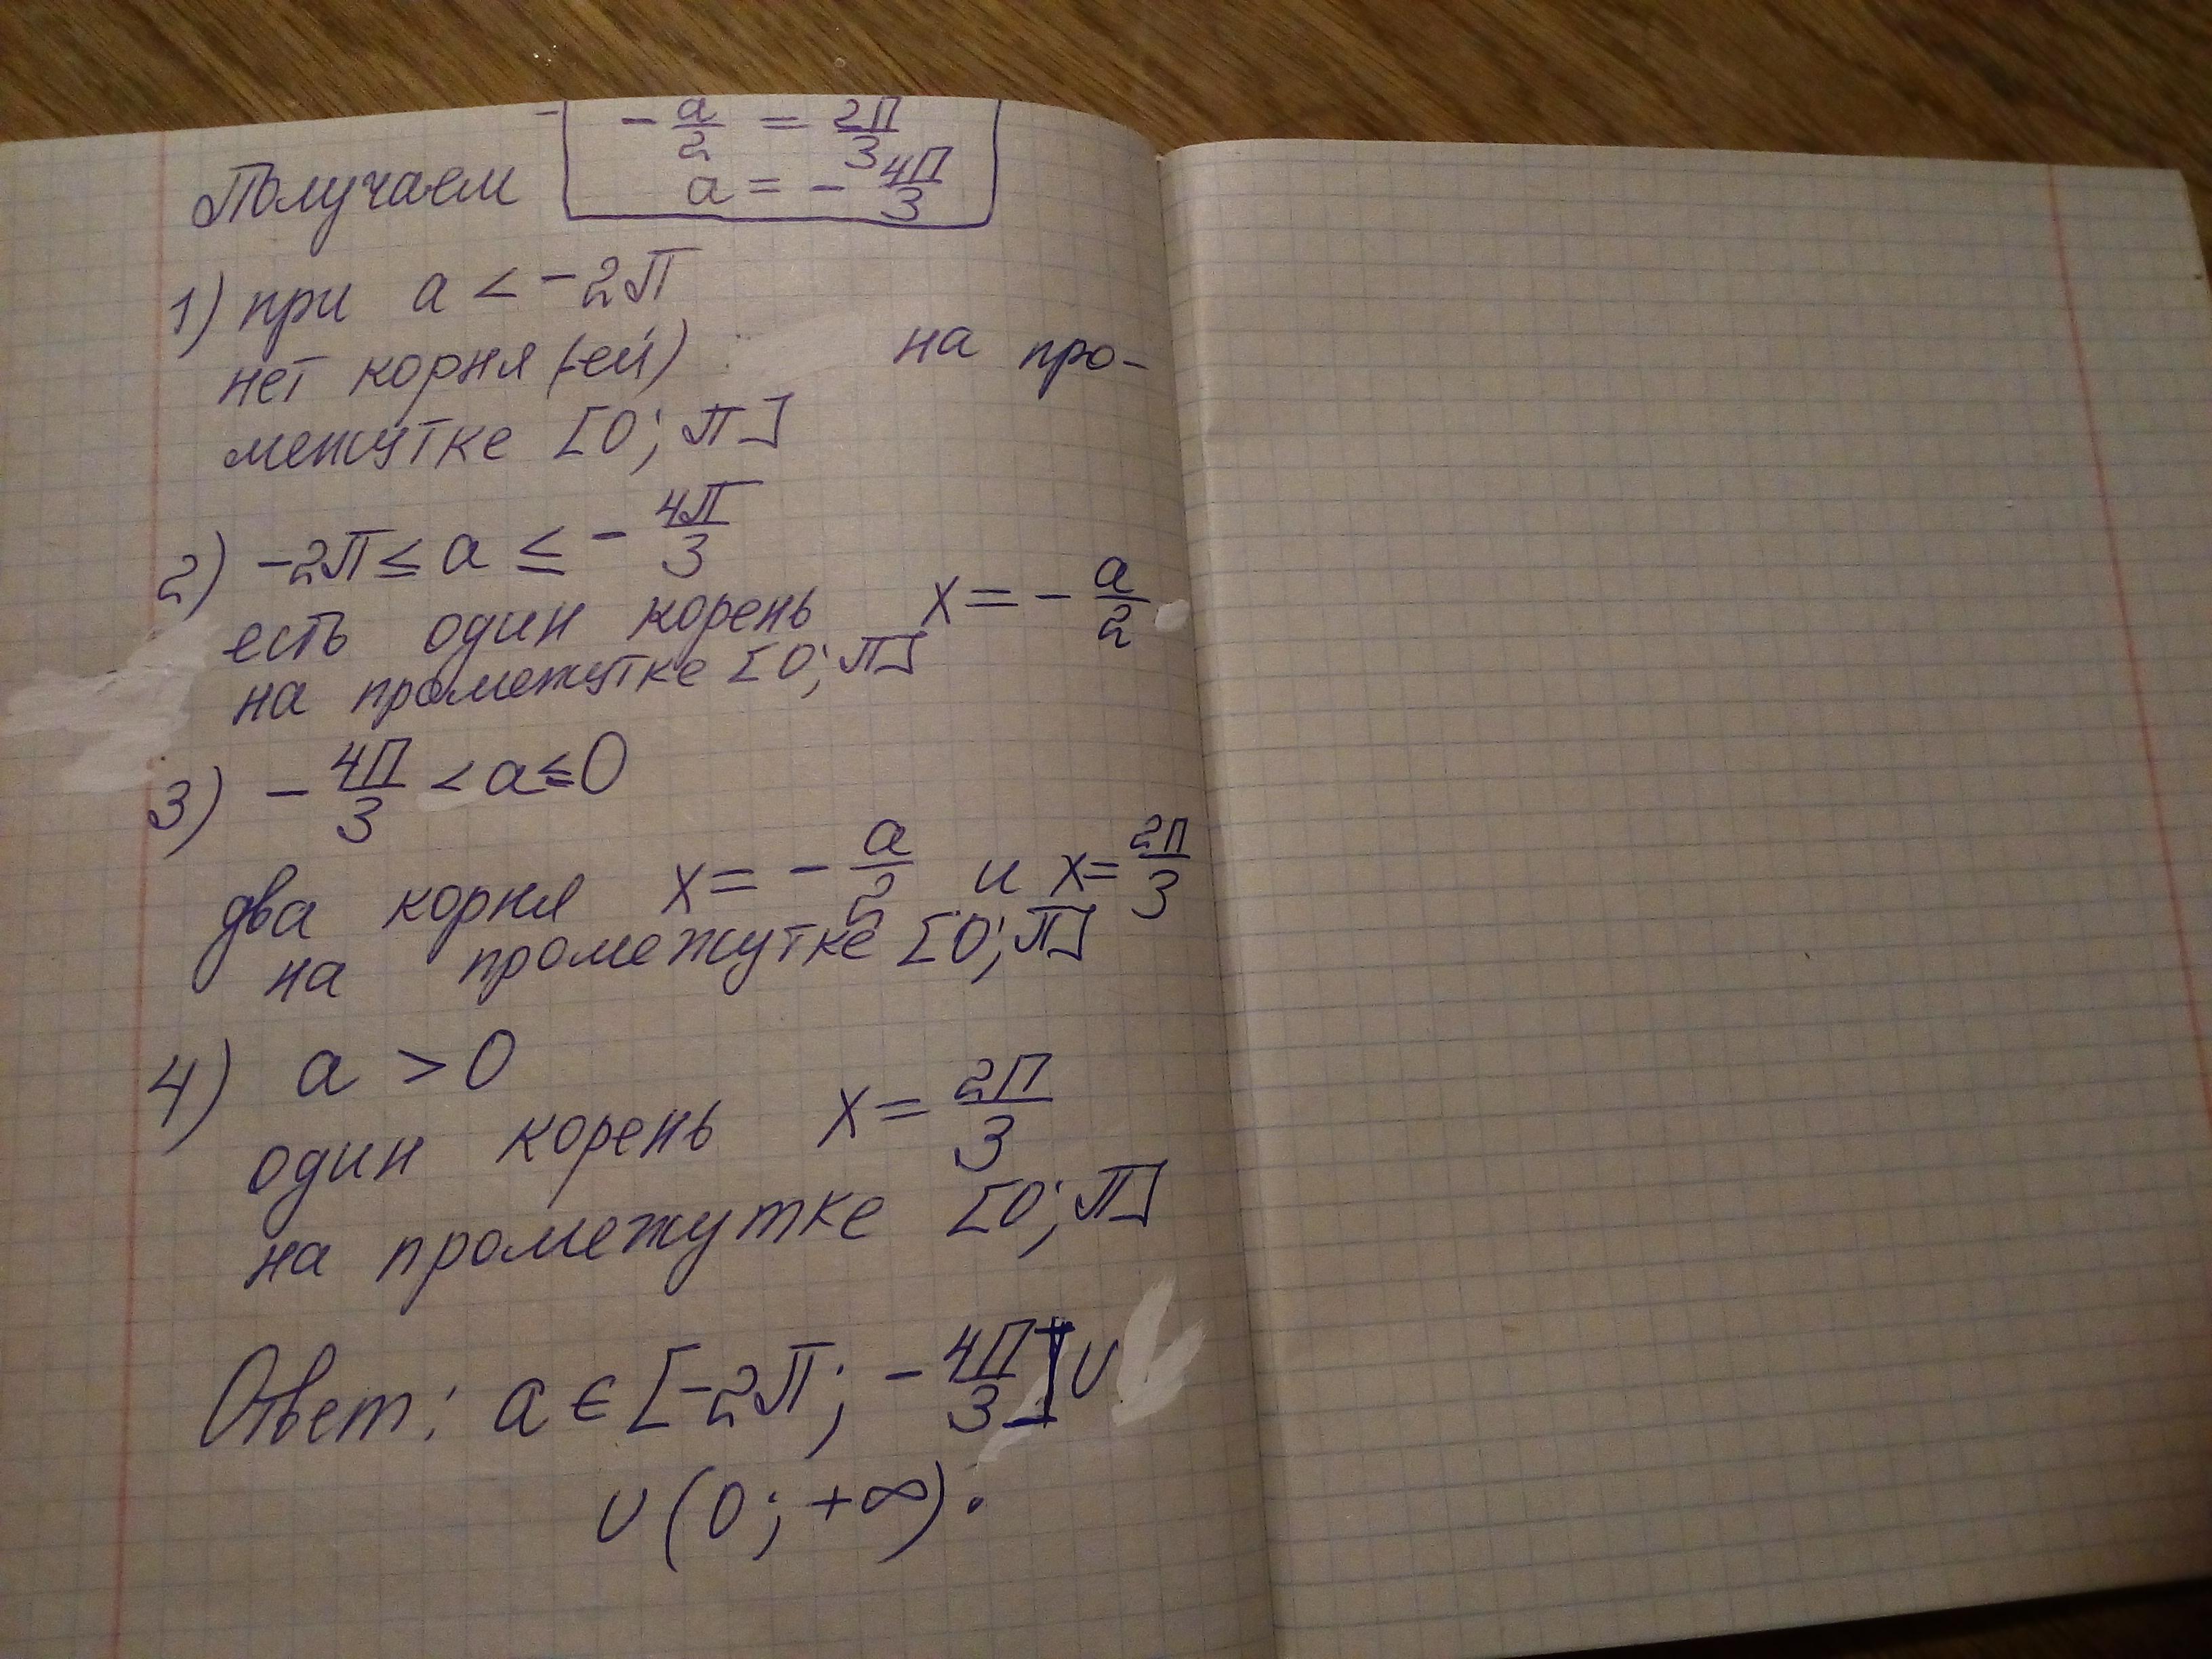 -a/2 = 2П/3
Получаем a = -4П/3
1) при a < -2П
нет корня (-ей) на про-
межутке [0; П]
2) -2П ≤ a ≤ -4П/3
есть один корень x = -a/2
на промежутке [0; П]
3) -4П/3 < a ≤ 0
два корня x = -a/2 и x = 2П/3
на промежутке [0; П]
4) a > 0
один корень x = 2П/3
на промежутке [0; П]
Ответ: a ∈ [-2П; -4П/3] ∪
∪ (0; +∞).